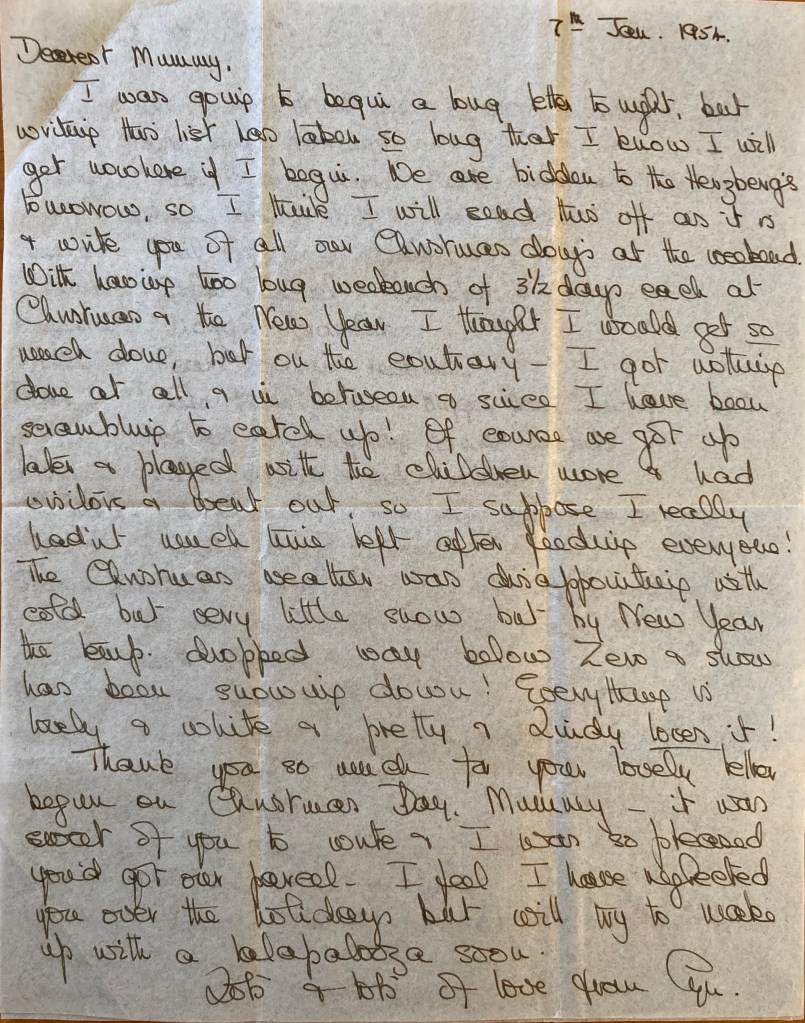 7th Jan. 1954.
Dearest Mummy,
I was going to begin a long letter tonight, but
writing this list has taken so long that I know I will
get nowhere if I begin. We are bidden to the Herzberg's
tomorrow, so I think I will send this off as it is
& write you of all our Christmas doings at the weekend.
With having two long weekends of 3½ days each at
Christmas & the New Year I thought I would get so
much done, but on the contrary – I got nothing
done at all, & in between & since I have been
scrambling to catch up! Of course we got up
later & played with the children more & had
visitors & went out, so I suppose I really
hadn't much time left after feeding everyone!
The Christmas weather was disappointing with
cold but very little snow but by New Year
the temp. dropped way below Zero & snow
has been snowing down! Everything is
lovely & white & pretty & Lindy loves it!
Thank you so much for your lovely letter
begun on Christmas Day, Mummy – it was
sweet of you to write & I was so pleased
you'd got our parcel – I feel I have neglected
you over the holidays but will try to make
up with a lalapalooza soon.
Lots & lots of love from